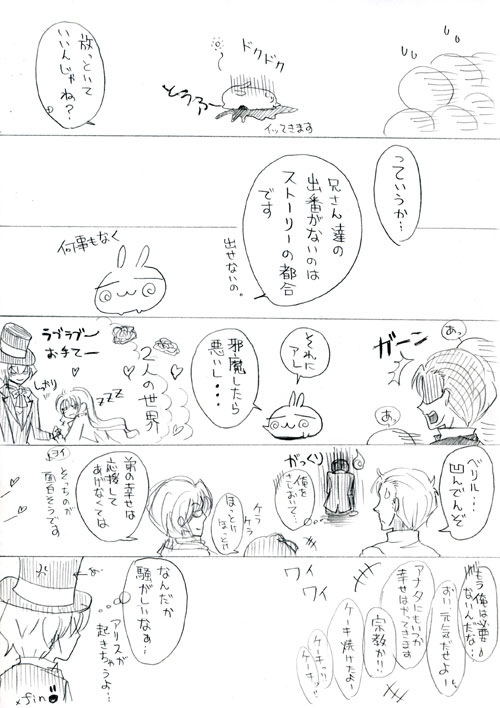 ドクドク
とうぁー
イッてきます
放っといて
いいんじゃね?
っていうか…
兄さん達の
出番がないのは
ストーリーの都合
です
出せないの。
何事もなく
あっ
ガーン
あ
それに
アレ
邪魔したら
悪いし…
2人の世界
ラブラブー
お手てー
しっかり
zzz
ベリル…
凹んでんぞ
がっくり
俺を
さしおいて…
ケラ
ケラ
ほっとけ
ほっとけ
弟の幸せは
応援して
あげなくては
そっちのが
面白そうです
もう俺は必要
ないんだな…
おい元気だせよー
アナタにもいつか
幸せはやってきます
宗教か!!
ケーキ焼けたよー
ケーキッ
ケーキッ
ワイ
ワイ
なんだか
騒がしいなぁ…
アリスが
起きちゃうよ…
×fin